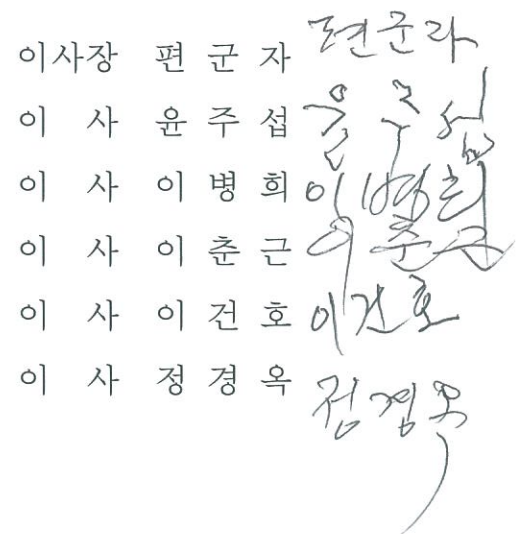 이사장 편 군 자 편군자
이 사 윤 주 섭 윤주섭
이 사 이 병 희 이병희
이 사 이 춘 근 이춘근
이 사 이 건 호 이건호
이 사 정 경 옥 정경옥